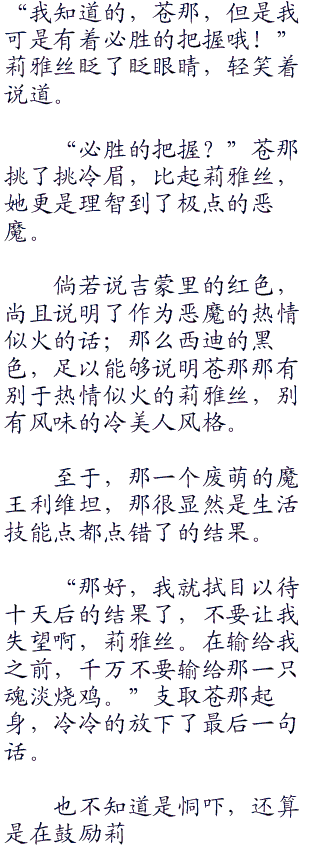 “我知道的，苍那，但是我
可是有着必胜的把握哦！”
莉雅丝眨了眨眼睛，轻笑着
说道。
“必胜的把握？”苍那
挑了挑冷眉，比起莉雅丝，
她更是理智到了极点的恶
魔。
倘若说吉蒙里的红色，
尚且说明了作为恶魔的热情
似火的话；那么西迪的黑
色，足以能够说明苍那那有
别于热情似火的莉雅丝，别
有风味的冷美人风格。
至于，那一个废萌的魔
王利维坦，那很显然是生活
技能点都点错了的结果。
“那好，我就拭目以待
十天后的结果了，不要让我
失望啊，莉雅丝。在输给我
之前，千万不要输给那一只
魂淡烧鸡。”支取苍那起
身，冷冷的放下了最后一句
话。
也不知道是恫吓，还算
是在鼓励莉